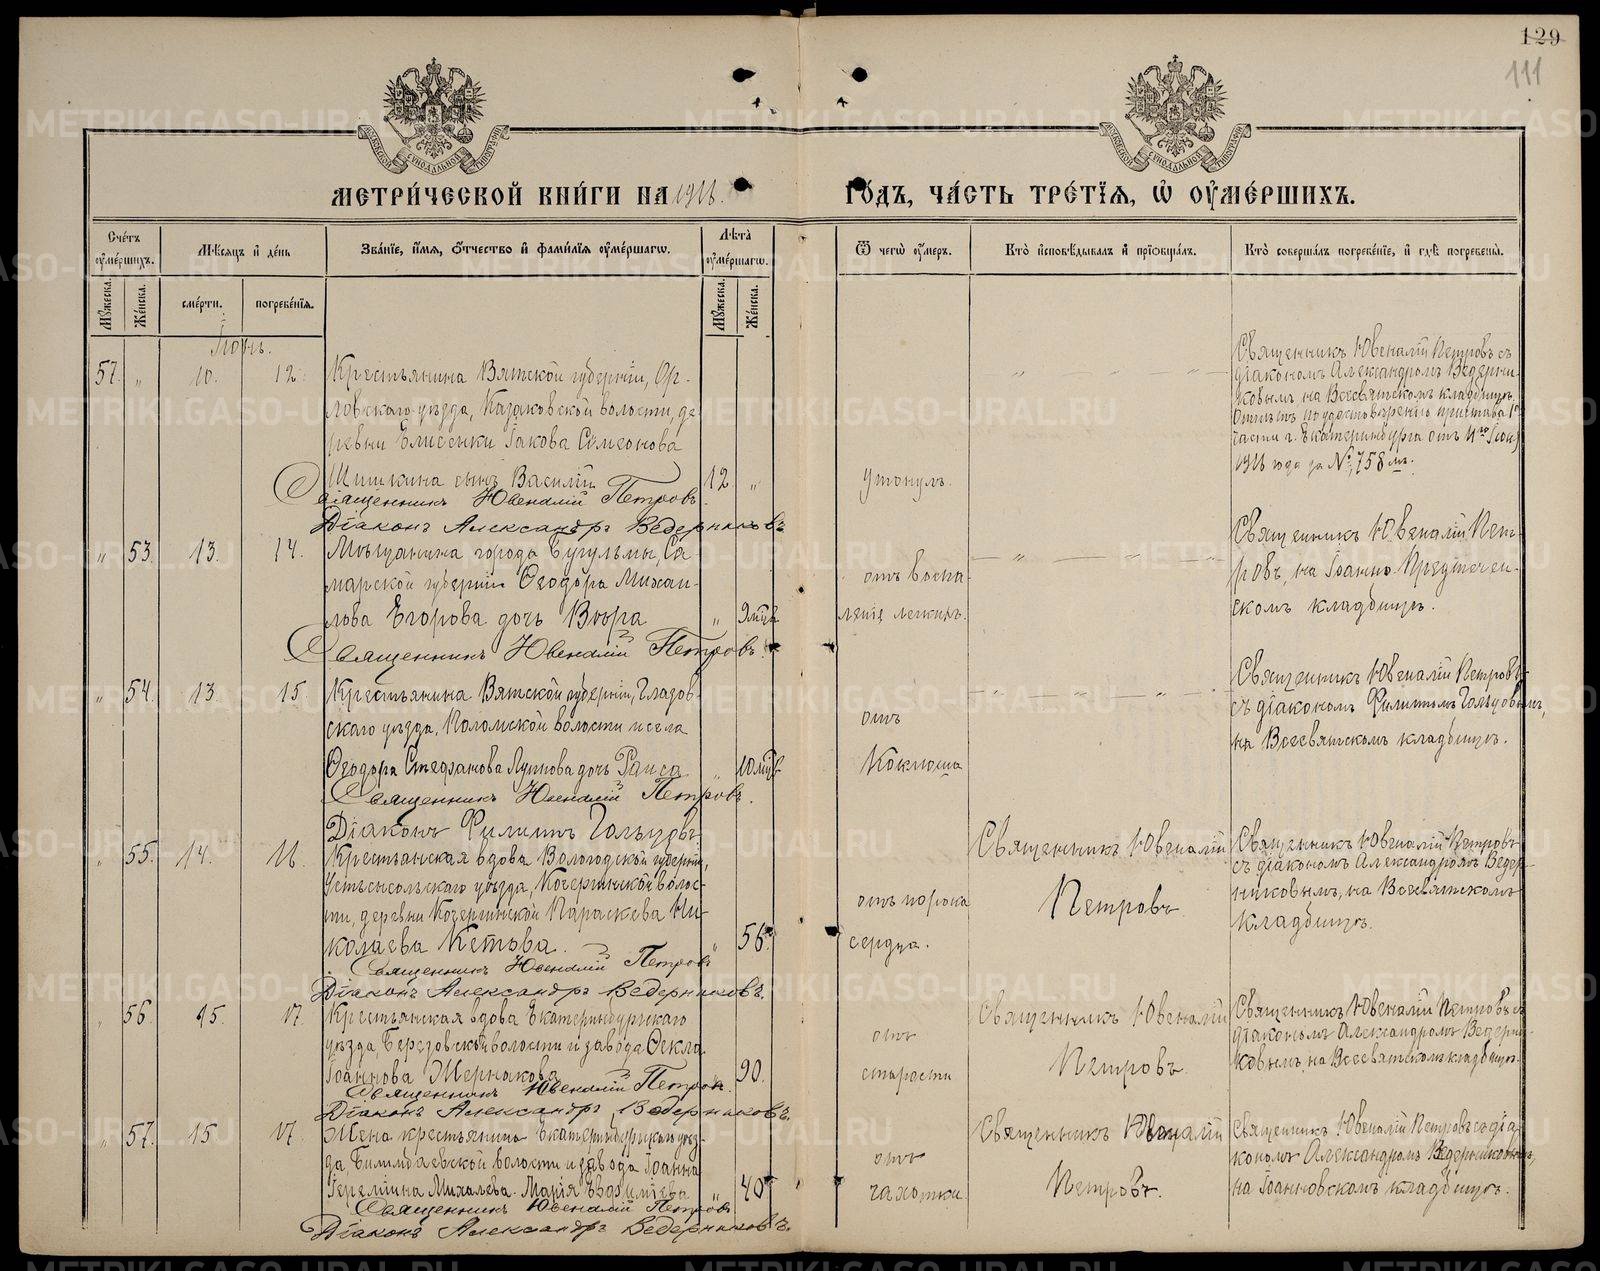 129
111
МЕТРИ́ЧЕСКОЙ КНИ́ГИ НА 1916. ГО́ДЪ, ЧА́СТЬ ТРЕ́ТЇѦ, Ѡ҆ ОУ҆МЕ́РШИХЪ.
Сче́тъ оу҆ме́ршихъ.
Му́жеска.
Же́нска.
Мѣ́сѧцъ и҆ де́нь
сме́рти.
погребе́нїѧ.
Зва́нїе, и҆́мѧ, ѻ҆́тчество и҆ фами́лїѧ оу҆ме́ршагѡ.
Лѣ́та оу҆ме́ршагѡ.
Му́жеска.
Же́нска.
Ѿ чегѡ̀ оу҆́меръ.
Кто̀ и҆сповѣ́дывалъ и҆ прїѡбща́лъ.
Кто̀ соверша́лъ погребе́нїе, и҆ гдѣ̀ погребены̀.
Іюнь.
57. " 10. 12.
Крестьянина Вятской губерніи, Ор-
ловскаго уѣзда, Казаковской волости, де
ревни Елисенки Іакова Симеонова
Шишкина сынъ Василій 12 "
Священникъ Ювеналій Петровъ
Діаконъ Александръ Ведерниковъ
утонулъ.
Священникъ Ювеналій Петровъ съ
діакономъ Александромъ Ведерни-
ковымъ, на Всесвятскомъ кладбищѣ.
Отпѣтъ по удостовѣренію пристава 1й
части г. Екатеринбурга отъ 11го Іюня
1916 года за № 758мъ.
" 53 13. 14.
Мѣщанина города Бугульмы, Са
марской губерніи Ѳеодора Михаи-
лова Егорова дочь Вѣра " 9 мѣц
Священникъ Ювеналій Петровъ.
отъ воспа-
ленія легкихъ.
Священникъ Ювеналій Пет-
ровъ, на Іоанно-Предтечен-
скомъ кладбищѣ.
" 54. 13. 15.
Крестьянина Вятской губерніи, Глазов
скаго уѣзда, Поломской волости и села
Ѳеодора Стефанова Лупнова дочь Раиса " 10 мѣц
Священникъ Ювеналій Петровъ.
Діаконъ Филиппъ Гольцовъ
отъ
Коклюша
Священникъ Ювеналій Петровъ
съ діакономъ Филиппомъ Гольцовымъ,
на Всесвятскомъ кладбищѣ.
" 55. 14. 16.
Крестьянская вдова Вологодской губерніи,
Устьсысольскаго уѣзда, волос-
ти, деревни Параскева Ни-
колаева Кетова. " 56.
Священникъ Ювеналій Петровъ
Діаконъ Александръ Ведерниковъ.
отъ порока
сердца.
Священникъ Ювеналій
Петровъ
Священникъ Ювеналій Петровъ
съ діакономъ Александромъ Ведер-
никовымъ, на Всесвятскомъ
кладбищѣ.
" 56. 15. 17.
Крестьянская вдова Екатеринбургскаго
уѣзда, Березовской волости и завода Ѳекла
Іоаннова Жернакова " 90.
Священникъ Ювеналій Петровъ.
Діаконъ Александръ Ведерниковъ.
отъ
старости
Священникъ Ювеналій
Петровъ.
Священникъ Ювеналій Петровъ съ
діакономъ Александромъ Ведерни-
ковымъ, на Всесвятскомъ кладбищѣ.
" 57. 15 17.
Жена крестьянина Екатеринбургскаго уѣз-
да, Билимбаевской волости и завода Іоанна
Іереміина Михалева Марія Евфиміева " 40
Священникъ Ювеналій Петровъ
Діаконъ Александръ Ведерниковъ.
отъ
чахотки
Священникъ Ювеналій
Петровъ.
Священникъ Ювеналій Петровъ съ діа
кономъ Александромъ Ведерниковымъ,
на Іоанновскомъ кладбищѣ.
METRIKI.GASO-URAL.RU